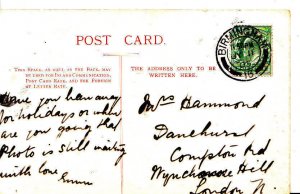 POST CARD.
THIS SPACE, AS WELL AS THE BACK, MAY
BE USED FOR COMMUNICATION.
POST CARD RATE, AND FOR FOREIGN
AT LETTER RATE.
THE ADDRESS ONLY TO BE
WRITTEN HERE.
BIRMINGHAM
Have you been away
for holidays or when
are you going that
Photo is still waiting
with love Emma
Mrs Hammond
Danehurst
Compton Rd
Wynchmore Hill
London N